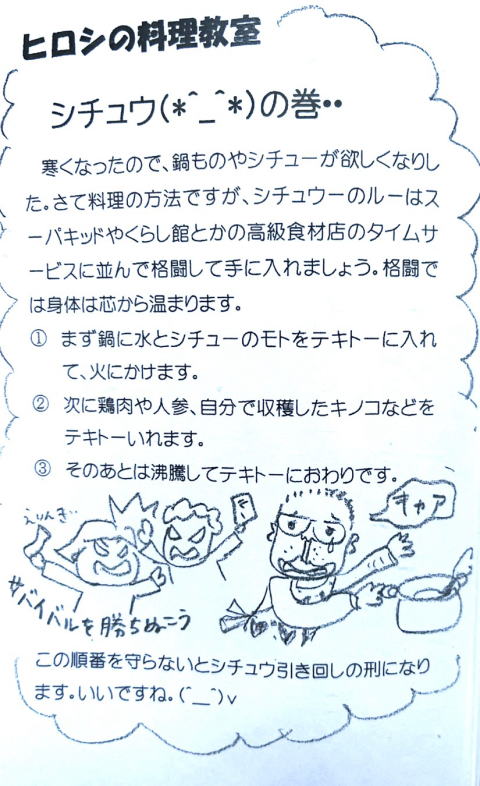 ヒロシの料理教室
シチュウ(*^_^*)の巻••
寒くなったので、鍋ものやシチューが欲しくなりし
た。さて料理の方法ですが、シチュウーのルーはス
ーパキッドやくらし館とかの高級食材店のタイムサ
ービスに並んで格闘して手に入れましょう。格闘で
は身体は芯から温まります。
① まず鍋に水とシチューのモトをテキトーに入れ
て、火にかけます。
② 次に鶏肉や人参、自分で収穫したキノコなどを
テキトーいれます。
③ そのあとは沸騰してテキトーにおわりです。
えりんぎ
キャア
サバイバルを勝ちぬこう
この順番を守らないとシチュウ引き回しの刑になり
ます。いいですね。(^__^)v